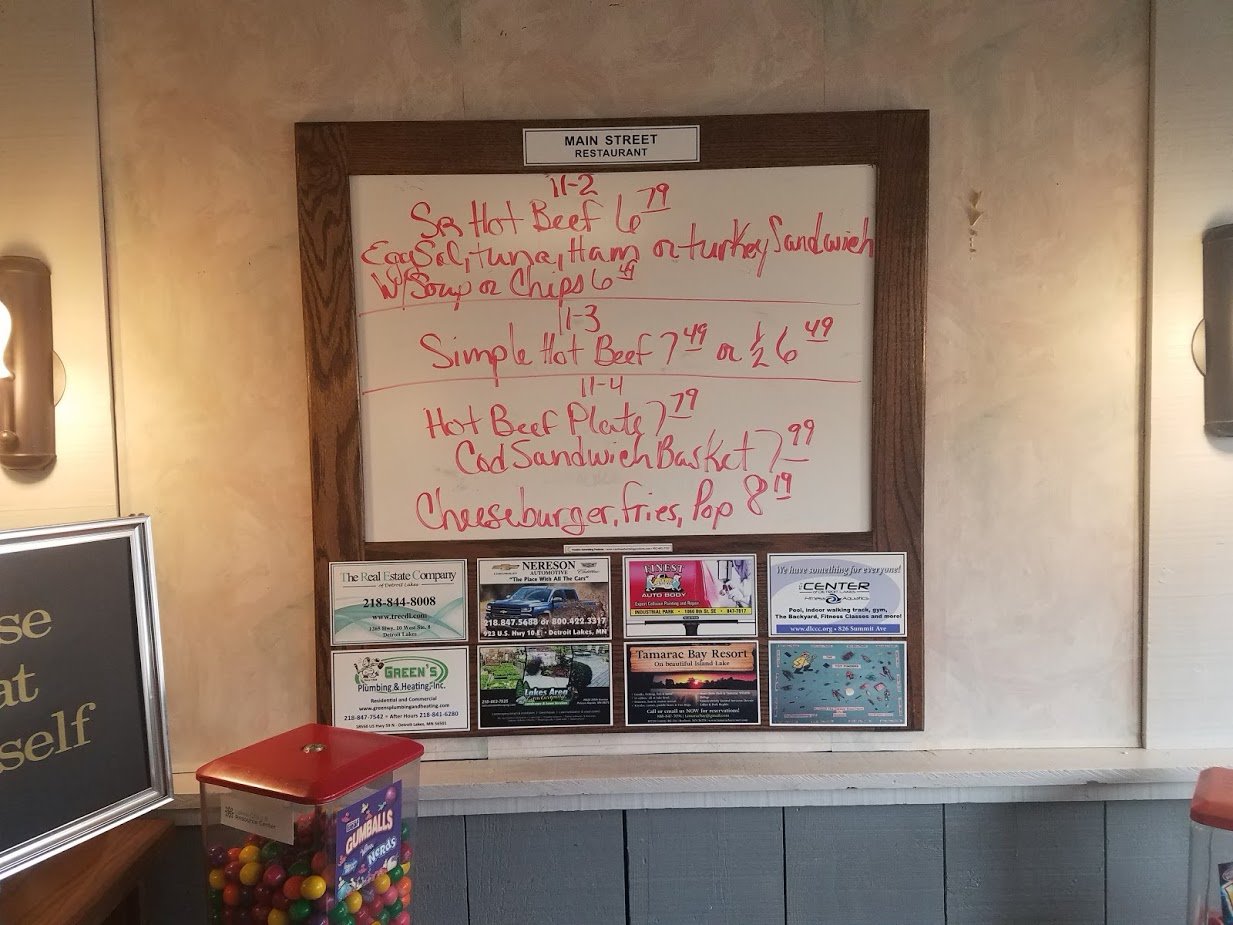 MAIN STREET
RESTAURANT
11-2
Sr Hot Beef 6 79
Egg Sal, tuna, Ham or turkey Sandwich
W/Soup or Chips 6 49
11-3
Simple Hot Beef 7 49 or 1/2 6 49
11-4
Hot Beef Plate 7 79
Cod Sandwich Basket 7 99
Cheeseburger, fries, Pop 8 19
The Real Estate Company
of Detroit Lakes
218-844-8008
www.treedl.com
Detroit Lakes
NERESON
AUTOMOTIVE
"The Place With All The Cars"
218.847.5688 or 800.422.3317
923 U.S. Hwy 10 E • Detroit Lakes, MN
FINEST
AUTO BODY
Expert Collision Painting and Repair
INDUSTRIAL PARK • 1060 8th St. SE • 847-7617
We have something for everyone!
CENTER
Fitness Aquatics
Pool, indoor walking track, gym,
The Backyard, Fitness Classes and more!
www.dlccc.org • 826 Summit Ave
GREEN'S
Plumbing & Heating, Inc.
Residential and Commercial
www.greensplumbingandheating.com
218-847-7542 • After Hours 218-841-6280
Lakes Area
Tamarac Bay Resort
On beautiful Island Lake
Call or email us NOW for reservations!
se
at
self
Resource Center
GUMBALLS
NERDS